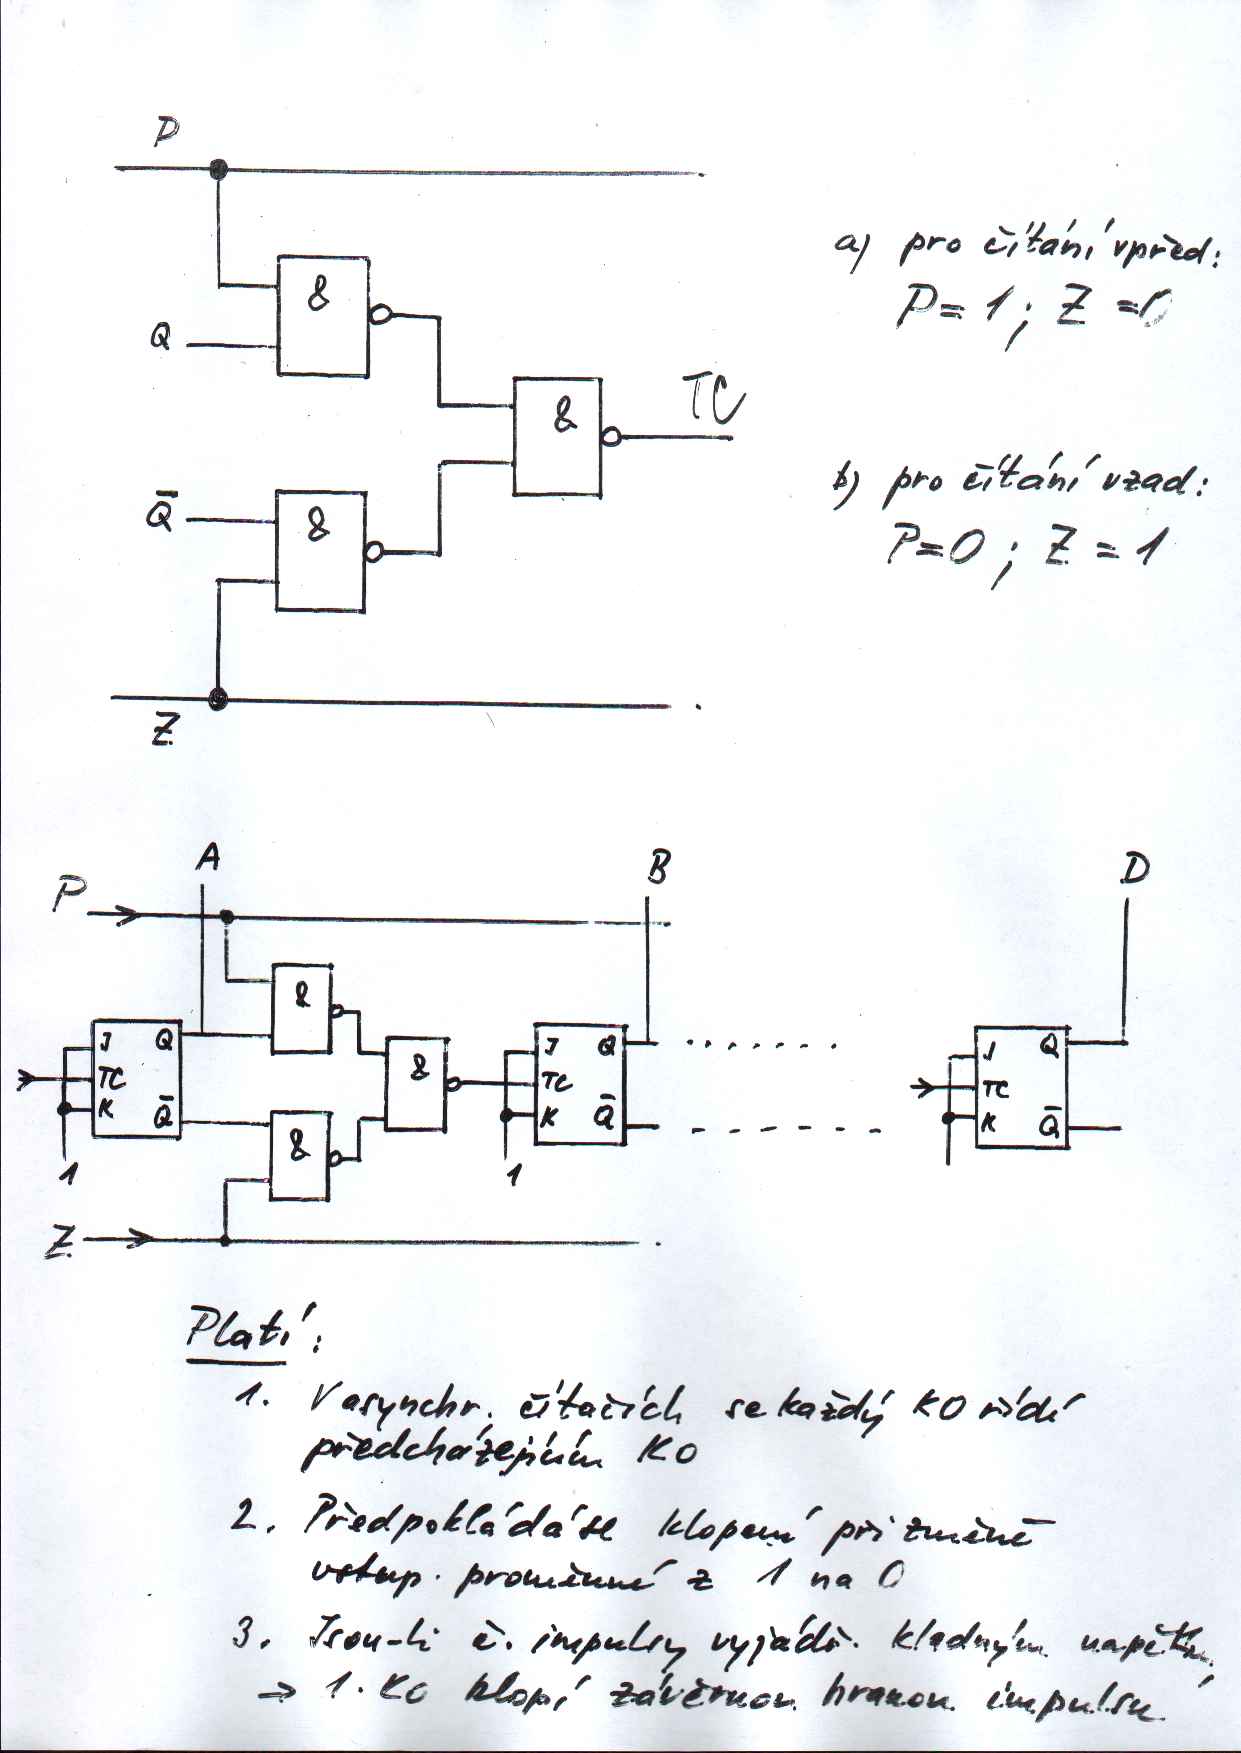 P
a) pro čítání vpřed:
P = 1 ; Z = 0
&
Q
TC
&
b) pro čítání vzad:
P = 0 ; Z = 1
Q̅
&
Z
A
B
D
P
&
J Q
TC
K Q̅
&
J Q
TC
K Q̅
J Q
TC
K Q̅
&
1
1
Z
Platí:
1. V asynchr. čítačích se každý KO řídí
předcházejícím KO
2. Předpokládá se klopení při změně
vstup. proměnné z 1 na 0
3. Jsou-li č. impulsy vyjádř. kladným napětím,
⇒ 1. KO klopí závěrnou hranou impulsu.